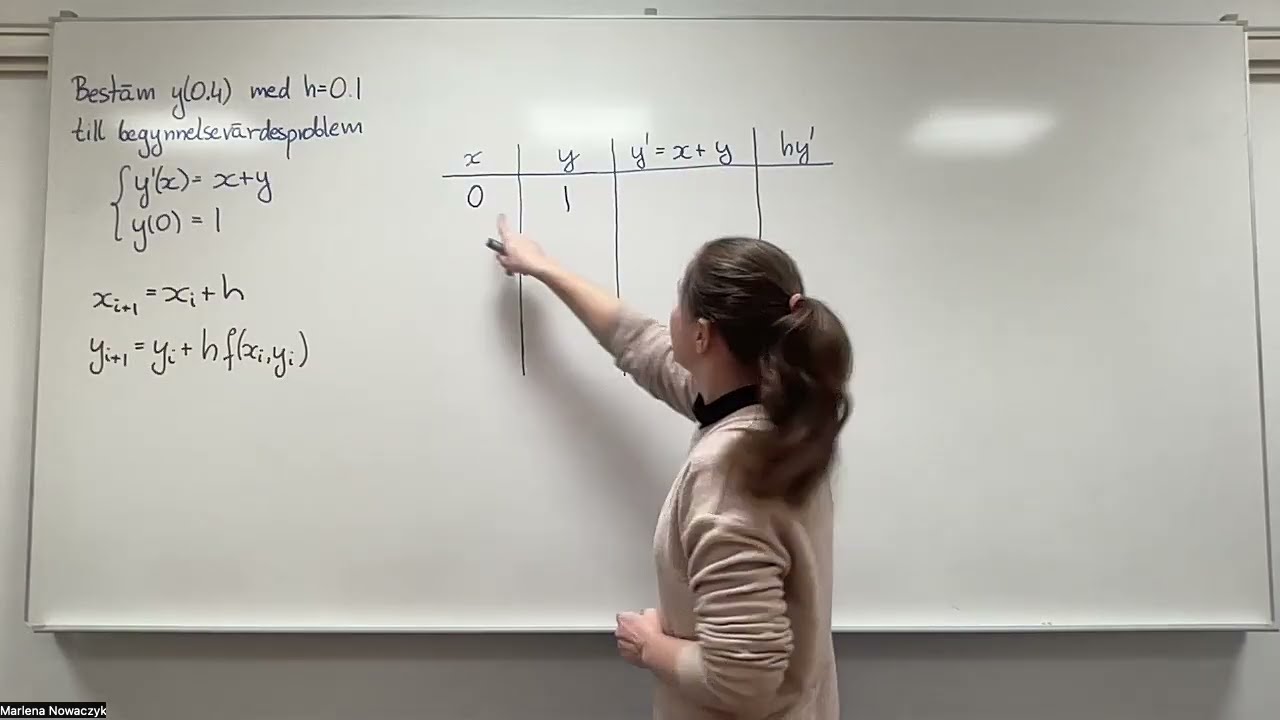 Bestäm y(0.4) med h=0.1
till begynnelsevärdesproblem
{ y'(x) = x+y
y(0) = 1
xᵢ₊₁ = xᵢ + h
yᵢ₊₁ = yᵢ + h f(xᵢ, yᵢ)
x y y' = x + y hy'
0 1
Marlena Nowaczyk